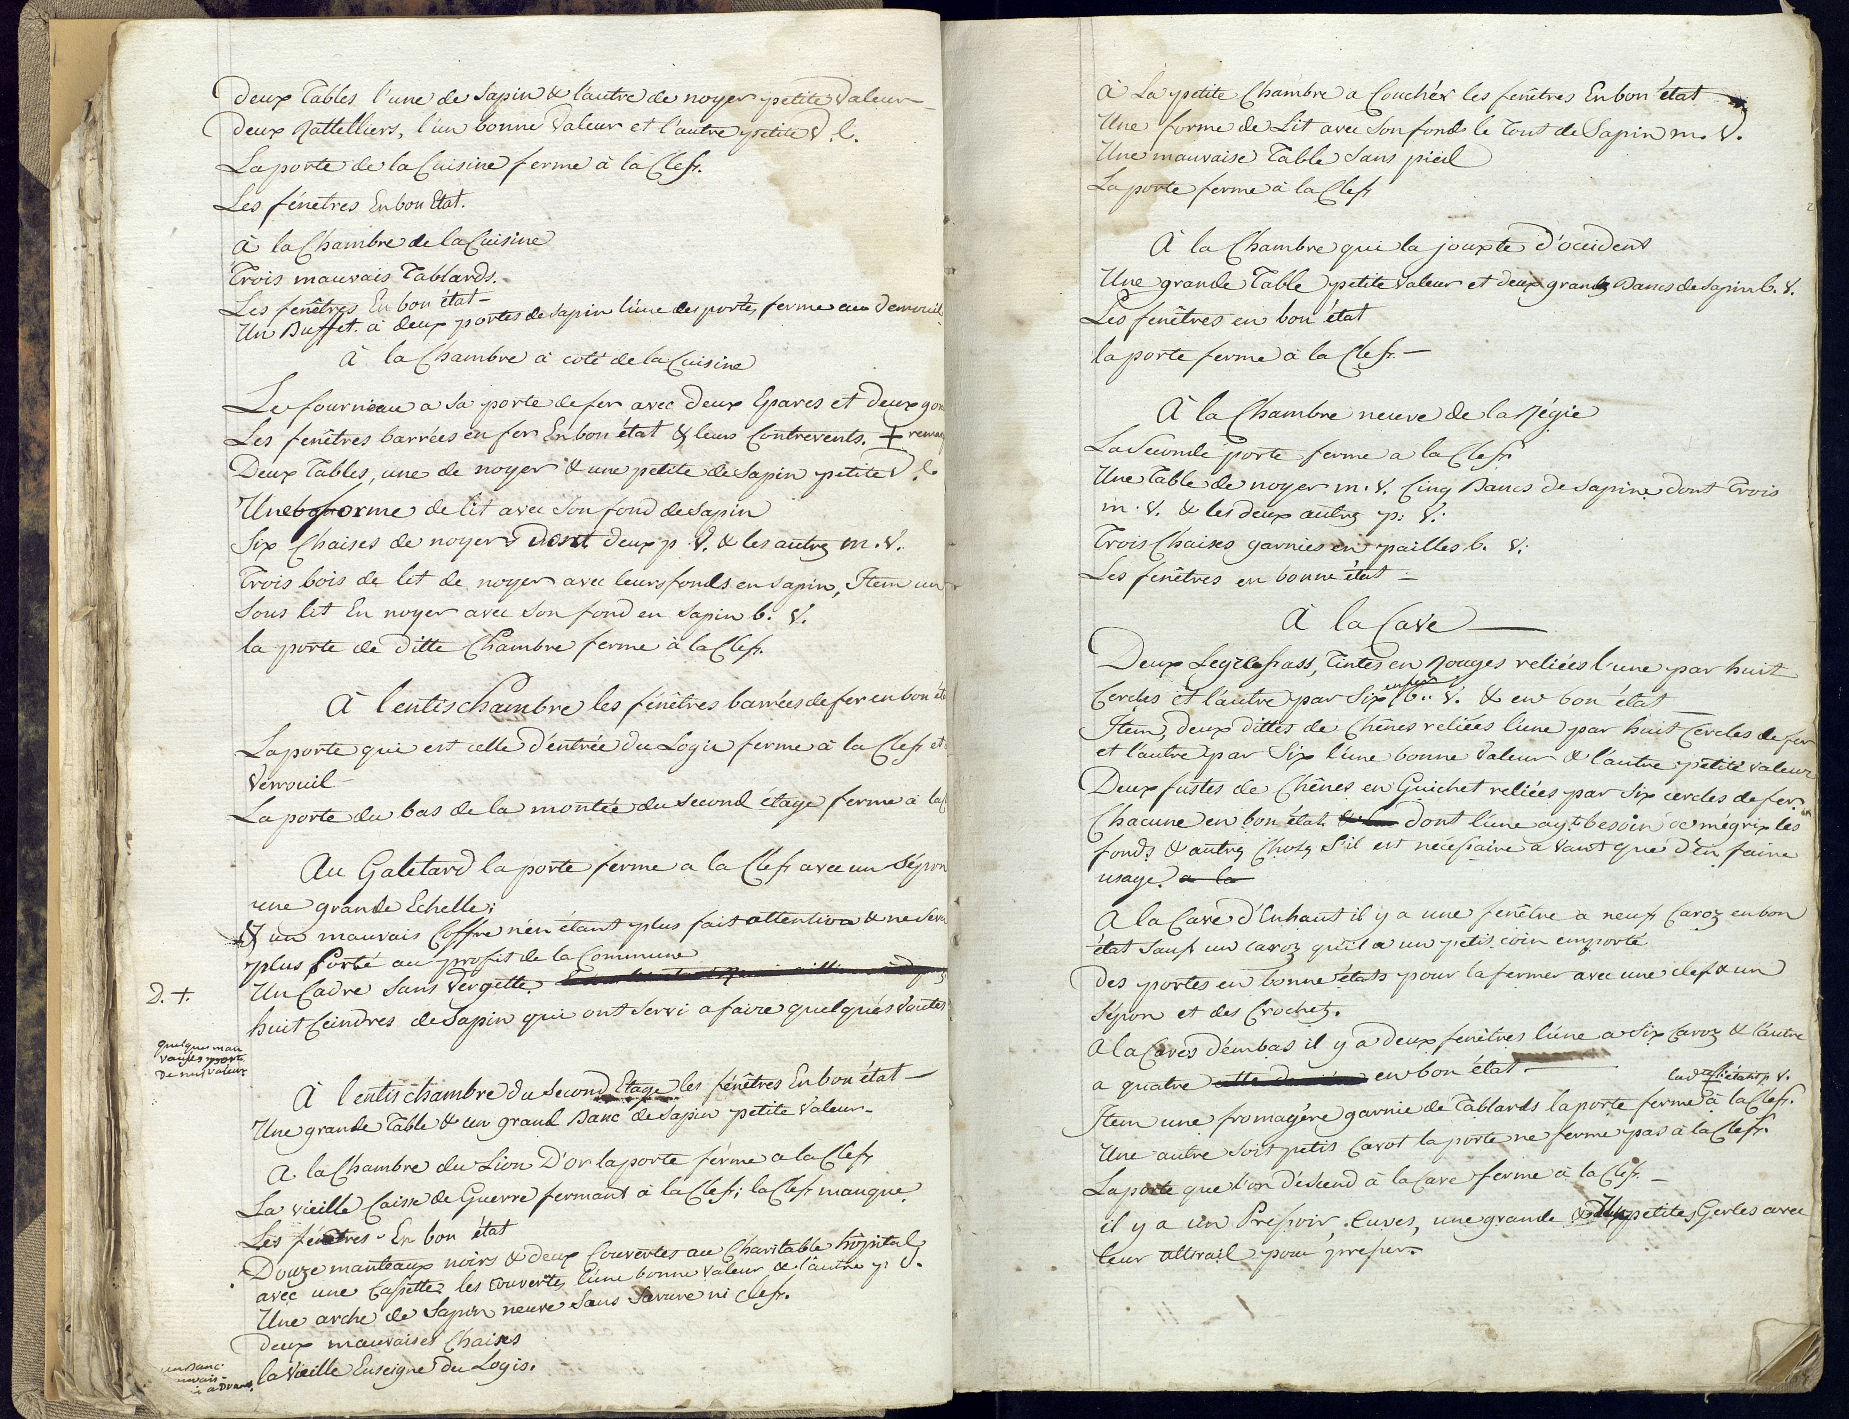 Deux Tables l'une de Sapin & l'autre de noyer petite Valeur
Deux Rattelliers, l'un bonne Valeur et l'autre petite V.
La porte de la Cuisine ferme à la Clef.
Les fénêtres En bon Etat.
à la Chambre de la Cuisine
Trois mauvais Tablards.
Les fenêtres En bon état
Un Buffet à deux portes de Sapin l'une des portes ferme au verrouil
à la Chambre à coté de la Cuisine
Le fourneau a sa porte de fer avec deux Epares et deux gon
Les fenêtres barrées en fer En bon état & leurs Contrevents.
Deux Tables, une de noyer & une petite de Sapin petite V.
Une forme de lit avec son fond de Sapin
Six Chaises de noyer dont deux p. V. & les autres m. V.
Trois bois de lit de noyer avec leurs fonds en Sapin, Item un
Sous lit En noyer avec Son fond en Sapin b. V.
la porte de ditte Chambre ferme à la Clef.
À l'entischambre les fénêtres barrées de fer en bon
La porte qui est celle d'entrée du Logis ferme à la Clef et
Verrouil
La porte du bas de la montée du second étage ferme à la
Au Galetard la porte ferme a la Clef avec un Sépon
une grande Echelle;
& un mauvais Coffre n'en étant plus fait attention & ne sera
plus Porté au profit de la Commune
D. +. Un Cadre Sans Vergette.
huit Ceindres de Sapin qui ont servi a faire quelques Voutes
quelques mau
vaises portes
De nul valeur
À l'entischambre du Second Etage les fénêtres En bon état
Une grande Table & un grand Banc de Sapin petite Valeur
À la Chambre du Lion D'or la porte ferme a la Clef
La vieille Caisse de Guerre fermant à la Clef; la Clef manque
Les fenêtres En bon état
Douze manteaux noirs & deux Couvertes au Charitable hôpital
avec une Cassette les couvertes l'une bonne valeur & l'autre p. V.
Une arche de Sapin neuve Sans Serrure ni Clef.
Deux mauvaises Chaises
la Vieille Enseigne du Logis.
un Banc
À La petite Chambre a Coucher les fenêtres En bon état
Une forme de Lit avec Son fonds le Tout de Sapin m. V.
Une mauvaise Table Sans pied
La porte ferme à la Clef
À la Chambre qui la jouxte d'occident
Une grande Table petite Valeur et deux grands Bancs de Sapin b. V.
Les fenêtres en bon état
la porte ferme à la Clef.
À la Chambre neuve de la Régie
La Seconde porte ferme a la Clef
Une Table de noyer m. V. Cinq Bancs de Sapin dont Trois
m. V. & les deux autres p. V.
Trois Chaises garnies en pailles b. V.
Les fenêtres en bonne état
À la Cave
Deux Legrefass, Tintes en Rouges reliées l'une par huit
Cercles et l'autre par Six en fer b. V. & en bon état
Item, deux dittes de Chênes reliées l'une par huit Cercles de fer
et l'autre par Six l'une bonne Valeur & l'autre petite valeur
Deux fustes de Chênes en Guichet reliées par Six cercles de fer
Chacune en bon état dont l'une ayt besoin de mégrix les
fonds & autres Choses S'il est nécessaire avant que d'en faire
usage. a la
À la Cave d'Enhaut il y a une fenêtre a neuf Caroz en bon
état Sauf un Caroz qu'il a un petit coin emporté
Des portes en bonne états pour la fermer avec une clef & un
Sépon et des Crochets.
à la Caves d'embas il y a deux fenêtres l'une a Six Caroz & l'autre
a quatre en bon état
Item une fromagère garnie de Tablards la porte ferme à la Clef.
Une autre Soit petit Cavot la porte ne ferme pas à la Clef.
La porte que l'on déscend à la Cave ferme à la Clef.
il y a un Pressoir, Cuves, une grande & petites Gerles avec
leur attirail pour presser.